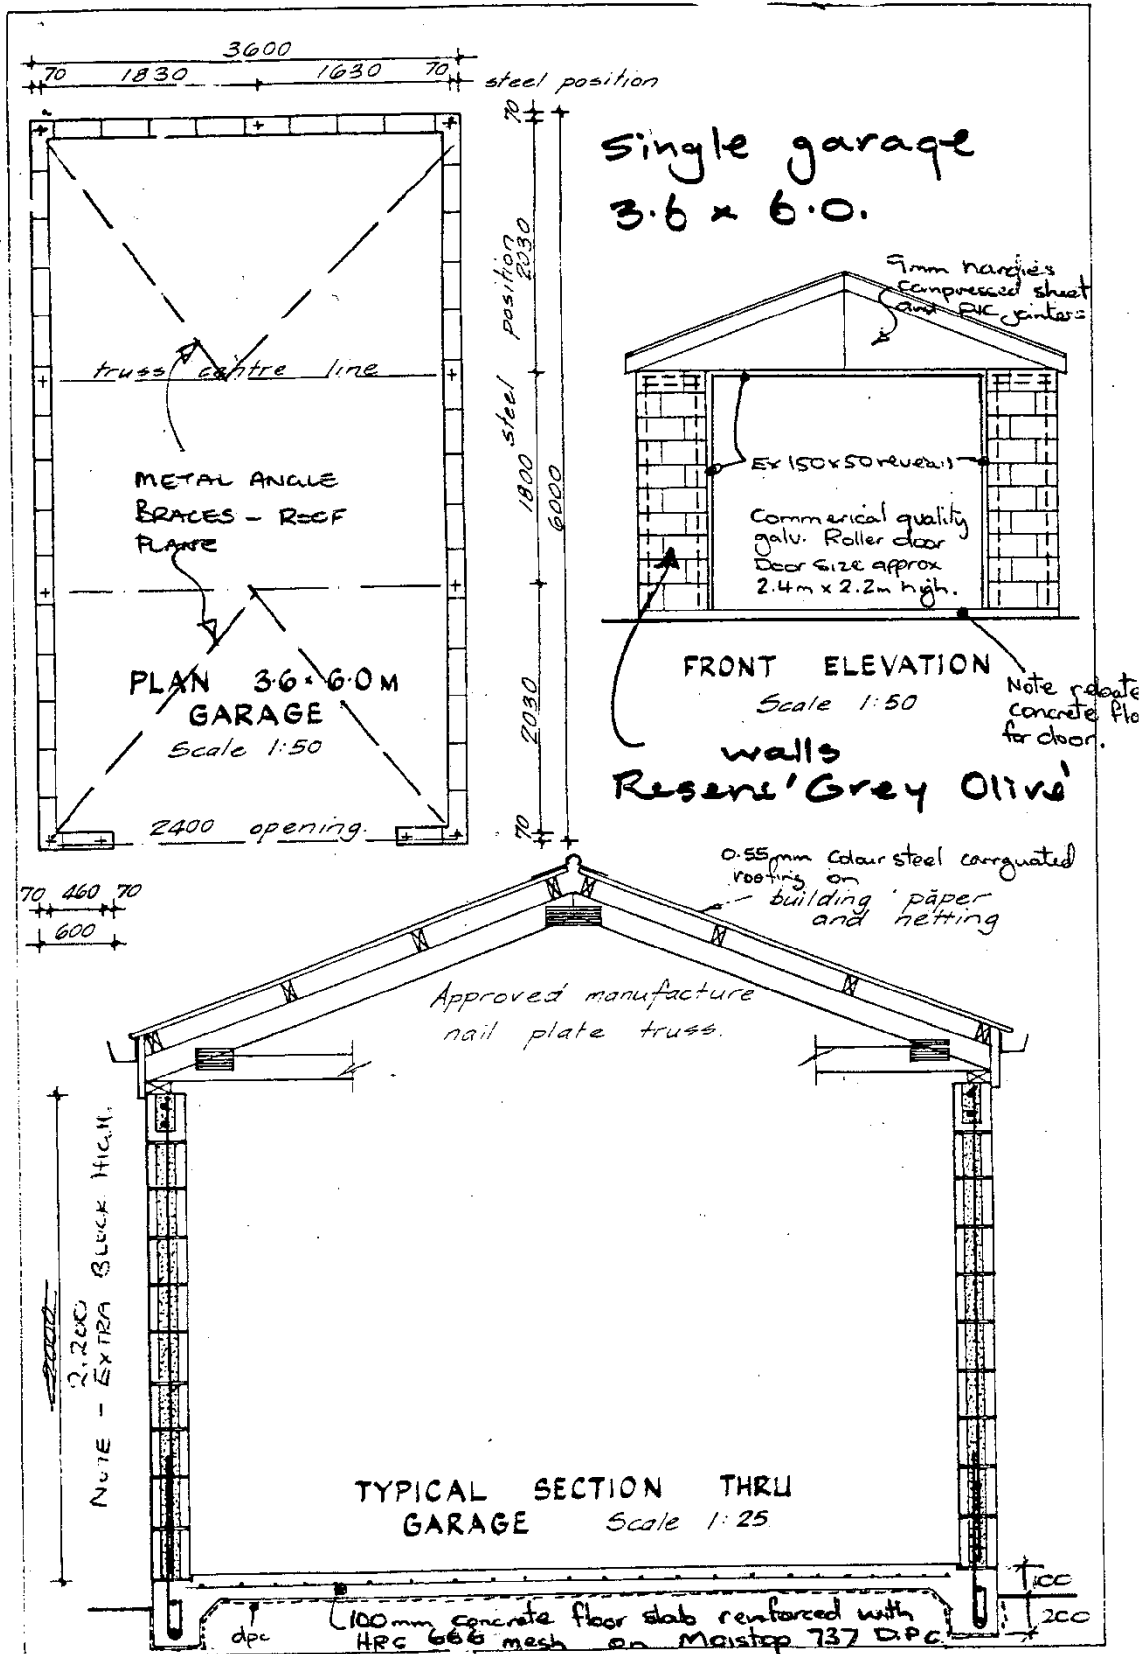 3600
70 1830 1630 70 steel position
single garage
3.6 x 6.0.
70
steel position
2030
1800
2030
70
6000
truss centre line
METAL ANGLE
BRACES - ROOF
PLANE
PLAN 3.6 x 6.0M
GARAGE
Scale 1:50
2400 opening.
70 460 70
600
9mm hardies
compressed sheet
and PVC jointers
Ex 150x50 reveals
Commerical quality
galv. Roller door
Door size approx
2.4m x 2.2m high.
FRONT ELEVATION
Scale 1:50
Note rebate
concrete flo
for door.
walls
Resene 'Grey Olive'
0.55mm Colour steel corrguated
roofing on
building paper
and netting
Approved manufacture
nail plate truss.
2000
2,200
NOTE - EXTRA BLOCK HIGH.
TYPICAL SECTION THRU
GARAGE Scale 1:25
100
200
dpc
100mm concrete floor slab reinforced with
HRC 666 mesh on Moistop 737 D.P.C.